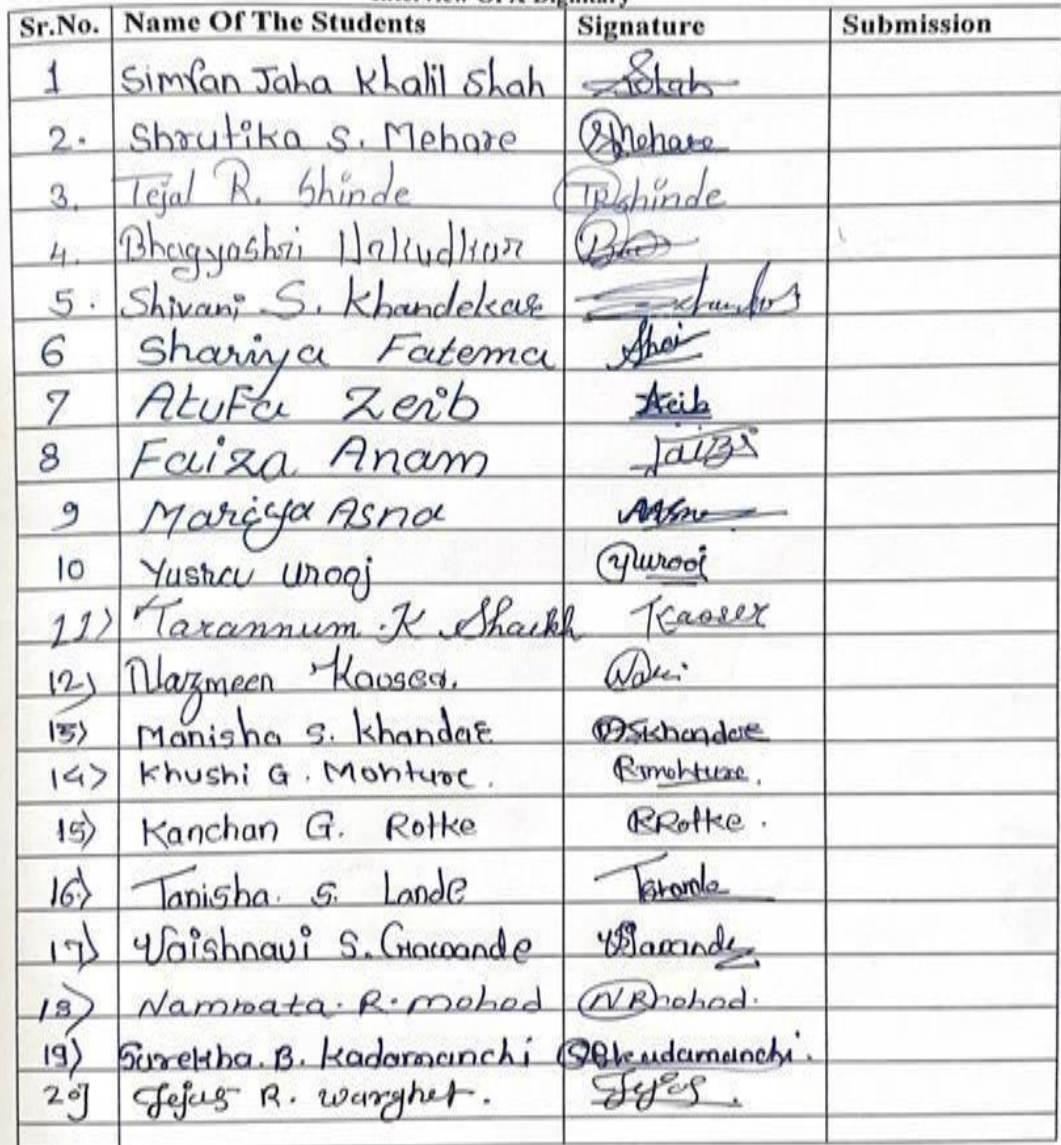 Interview Of A Dignitary
Sr.No. Name Of The Students Signature Submission
1 Simran Jaha Khalil Shah Shah
2. Shrutika S. Mehare SMehare
3. Tejal R. Shinde TRShinde
4. Bhagyashri
5. Shivani S. Khandekar
6 Shariya Fatema
7 Atufa Zeib Zeib
8 Faiza Anam Faiza
9 Mariya Asna
10 Yusra Urooj Yurooj
11) Tarannum K Shaikh Kaoser
12) Nazmeen Kaoser.
13) Manisha S. Khandare MSKhandare
14) Khushi G. Mohture. Kmohture.
15) Kanchan G. Rotke KRotke.
16) Tanisha. S. Lande
17) Vaishnavi S. Gawande VGawande
18) Namrata. R. mohod NRmohod.
19) Surekha. B. Kadamanchi SBkadamanchi.
20) Tejas R. warghet. Tejas.